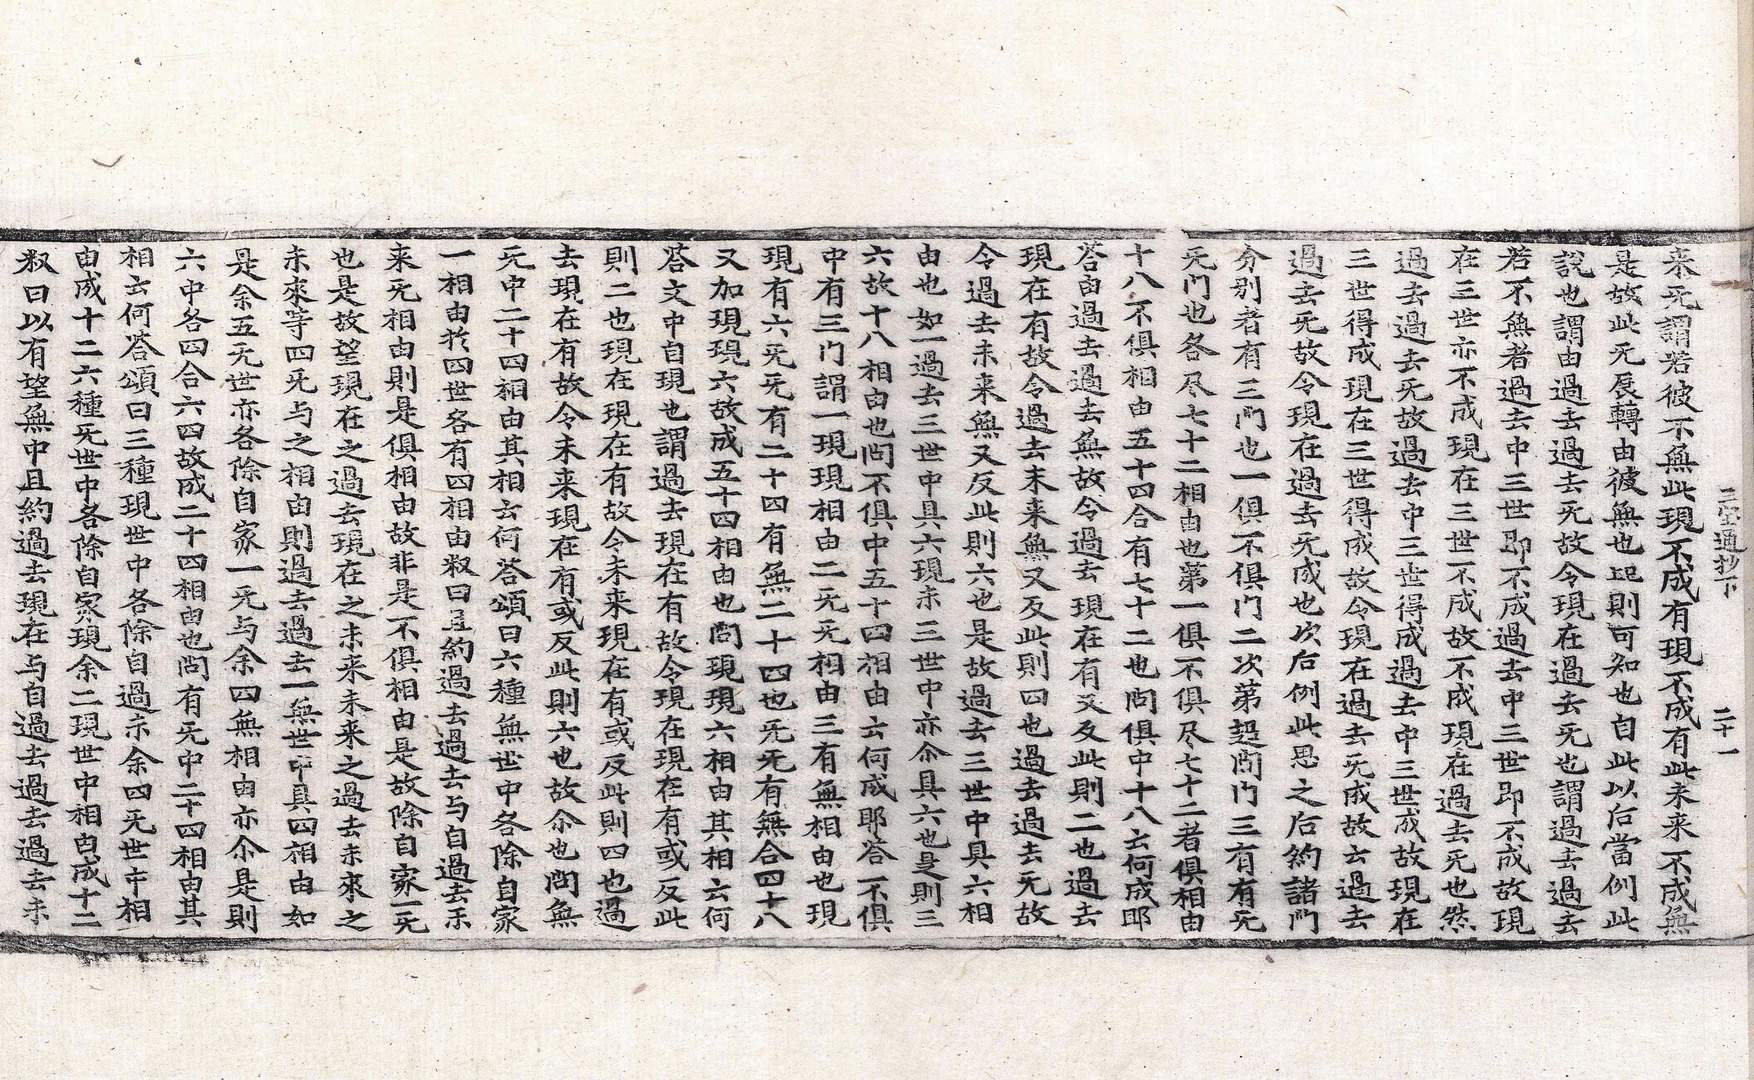 三宝通抄下　二十一
来旡謂若彼不無此現不成有現不成有此未来不成無
是故此旡展轉由彼無也𨓏則可知也自此以后當例此
說也謂由過去過去旡故令現在過去旡也謂過去過去
若不無者過去中三世即不成過去中三世即不成故現
在三世亦不成現在三世不成故不成現在過去旡也然
過去過去旡故過去中三世得成過去中三世成故現在
三世得成現在三世得成故令現在過去旡成故云過去
過去旡故令現在過去旡成也次后例此思之后約諸門
分別者有三門也一俱不俱門二次第超間門三有有旡
旡門也各尽七十二相由也第一俱不俱尽七十二者俱相由
十八不俱相由五十四合有七十二也問俱中十八云何成耶
荅由過去過去無故令過去現在有又反此則二也過去
現在有故令過去未来無又反此則四也過去過去旡故
令過去未来無又反此則六也是故過去三世中具六相
由也如一過去三世中具六現未三世中亦尒具六也是則三
六故十八相由也問不俱中五十四相由云何成耶荅不俱
中有三门謂一現現相由二旡旡相由三有無相由也現
現有六旡旡有二十四有無二十四也旡旡有無合四十八
又加現現六故成五十四相由也問現現六相由其相云何
荅文中自現也謂過去現在有故令現在現在有或反此
則二也現在現在有故令未来現在有或反此則四也過
去現在有故令未来現在有或反此則六也故尒也問無
旡中二十四相由其相云何荅頌曰六種無世中各除自家
一相由於四世各有四相由釈曰且約過去過去与自過去未
来旡相由則是俱相由故非是不俱相由是故除自家一旡
也是故望現在之過去現在之未来未来之過去未來之
未來等四旡与之相由則過去過去一無世中具四相由如
是余五旡世亦各除自家一旡与余四無相由亦尒是則
六中各四合六四故成二十四相由也問有旡中二十四相由其
相云何荅頌曰三種現世中各除自過未余四旡世中相
由成十二六種旡世中各除自家現余二現世中相由成十二
釈曰以有望無中且約過去現在与自過去過去過去未